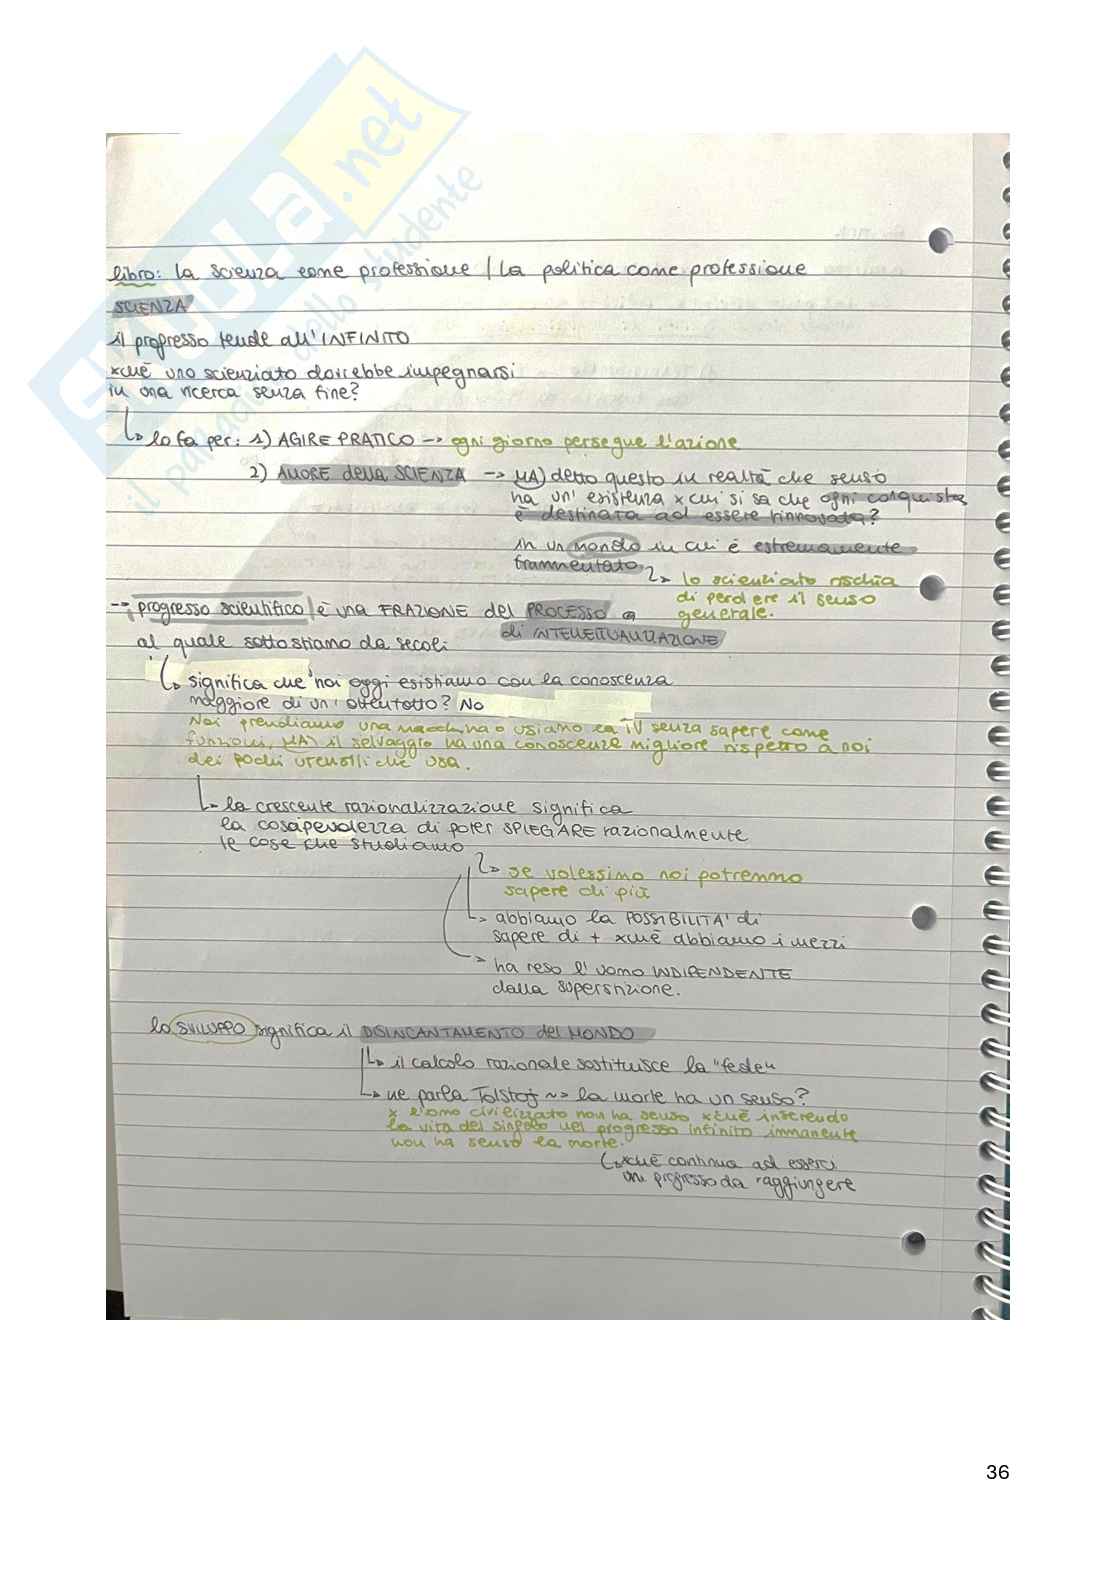 SKUOLA.net
il paradiso dello studente
libro: la scienza come professione / La politica come professione
SCIENZA
il progresso tende all'INFINITO
xchè uno scienziato dovrebbe impegnarsi
in una ricerca senza fine?
↳ lo fa per: 1) AGIRE PRATICO → ogni giorno persegue l'azione
2) AMORE della SCIENZA → MA) detto questo in realtà che senso
ha un'esistenza x cui si sa che ogni conquista
è destinata ad essere rinnovata?
in un mondo in cui è estremamente
frammentato
↳ lo scienziato rischia
di perdere il senso
generale.
→ progresso scientifico è una FRAZIONE del PROCESSO
di INTELLETTUALIZZAZIONE
al quale sottostiamo da secoli
↳ significa che noi oggi esistiamo con la conoscenza
maggiore di un ottentotto? No
Noi prendiamo una macchina o usiamo la TV senza sapere come
funzioni, MA) il selvaggio ha una conoscenza migliore rispetto a noi
dei pochi utensili che usa.
↳ la crescente razionalizzazione significa
la cosapevolezza di poter SPIEGARE razionalmente
le cose che studiamo
↳ se volessimo noi potremmo
sapere di più
↳ abbiamo la POSSIBILITA' di
sapere di + xchè abbiamo i mezzi
→ ha reso l'uomo INDIPENDENTE
dalla superstizione.
lo SVILUPPO significa il DISINCANTAMENTO del MONDO
↳ il calcolo razionale sostituisce la "fede"
↳ ne parla Tolstoj ~> la morte ha un senso?
x l'omo civilizzato non ha senso xchè inserendo
la vita del singolo nel progresso infinito immanente
non ha senso la morte.
↳ xchè continua ad esserci
un progresso da raggiungere
36